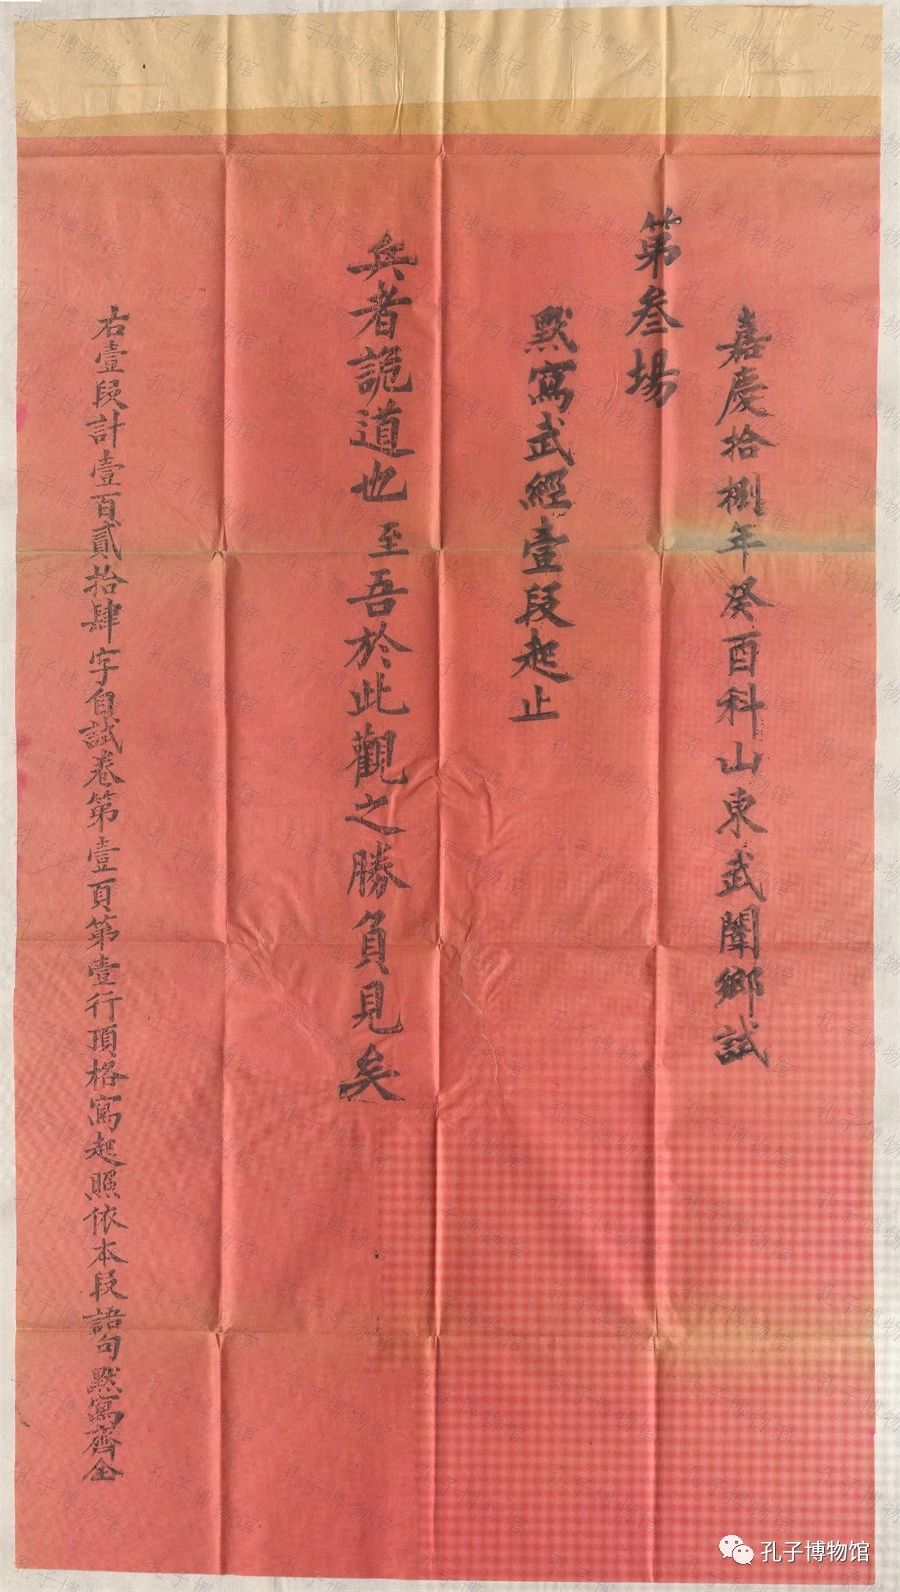 嘉慶拾捌年癸酉科山東武闈鄉試
第叁場
默寫武經壹段起止
兵者詭道也至吾於此觀之勝負見矣
右壹段計壹百貳拾肆字自試卷第壹頁第壹行頂格寫起照依本段語句默寫齊全
孔子博物馆